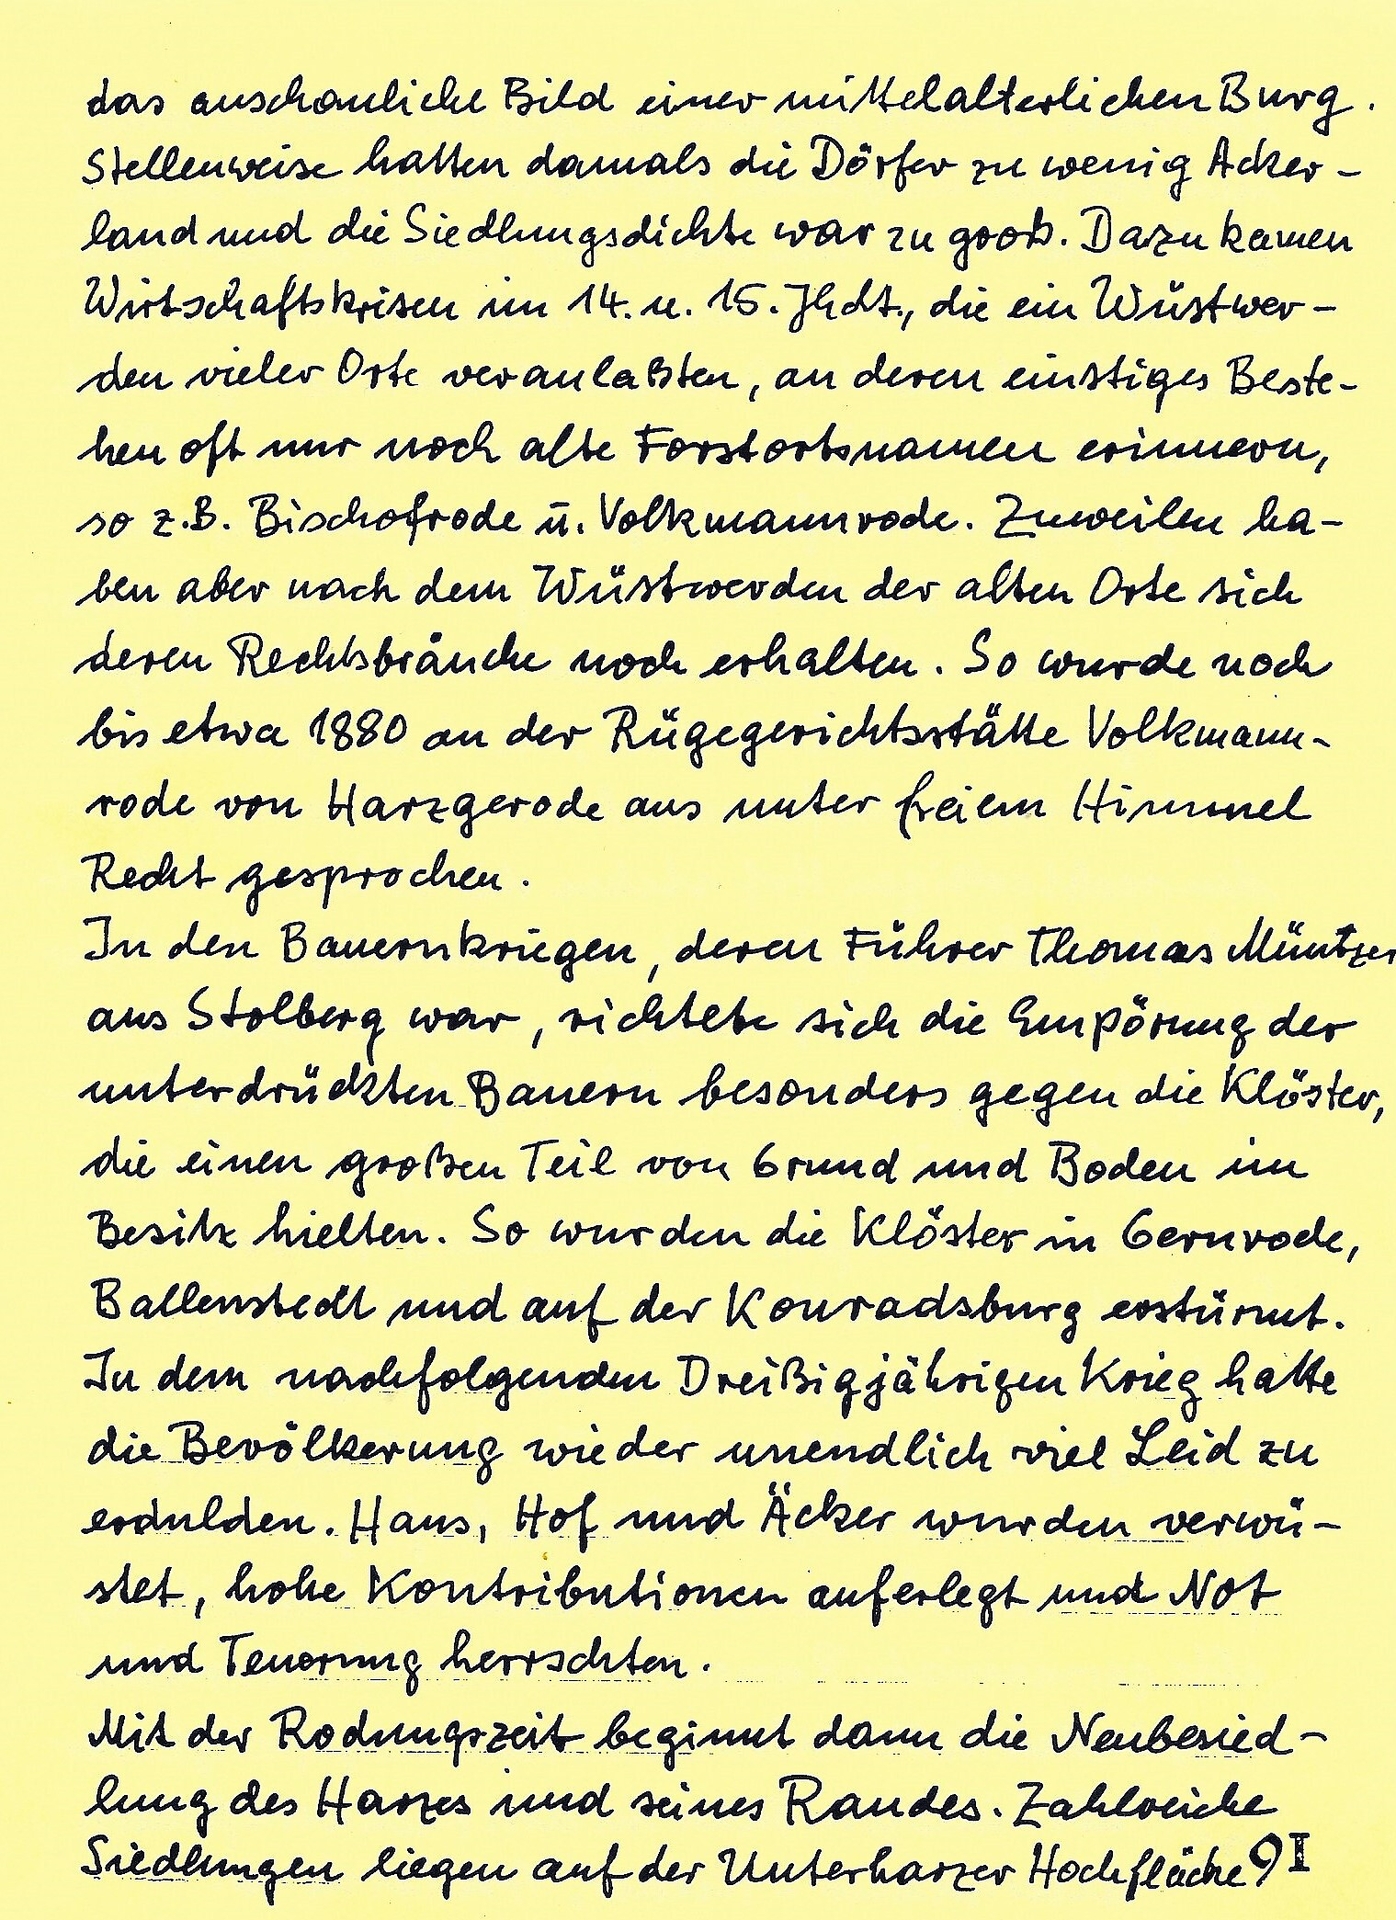 das anschauliche Bild einer mittelalterlichen Burg.
Stellenweise hatten damals die Dörfer zu wenig Acker-
land und die Siedlungsdichte war zu groß. Dazu kamen
Wirtschaftskrisen im 14. u. 15. Jhdt., die ein Wüstwer-
den vieler Orte veranlaßten, an deren einstiges Beste-
hen oft nur noch alte Forstortsnamen erinnern,
so z.B. Bischofrode u. Volkmannrode. Zuweilen ha-
ben aber nach dem Wüstwerden der alten Orte sich
deren Rechtsbräuche noch erhalten. So wurde noch
bis etwa 1880 an der Rügegerichtsstätte Volkmann-
rode von Harzgerode aus unter freiem Himmel
Recht gesprochen.
In den Bauernkriegen, deren Führer Thomas Müntzer
aus Stolberg war, richtete sich die Empörung der
unterdrückten Bauern besonders gegen die Klöster,
die einen großen Teil von Grund und Boden im
Besitz hielten. So wurden die Klöster in Gernrode,
Ballenstedt und auf der Konradsburg erstürmt.
In dem nachfolgenden Dreißigjährigen Krieg hatte
die Bevölkerung wieder unendlich viel Leid zu
erdulden. Haus, Hof und Äcker wurden verwü-
stet, hohe Kontributionen auferlegt und Not
und Teuerung herrschten.
Mit der Rodungszeit beginnt dann die Neubesied-
lung des Harzes und seines Randes. Zahlreiche
Siedlungen liegen auf der Unterharzer Hochfläche 9I